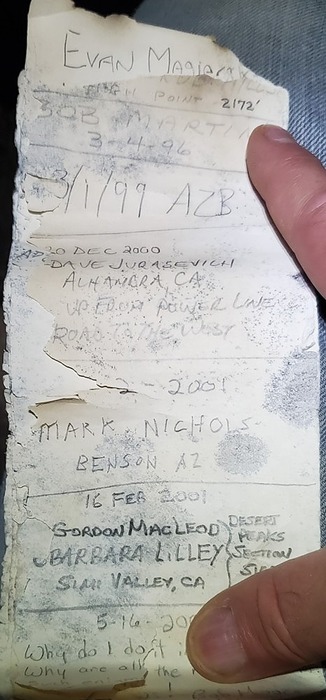 EVAN
HIGH POINT 2172'
BOB MARTIN
3-4-96
3/1/99 AZB
20 DEC 2000
DAVE JURASEVICH
ALHAMBRA, CA
UP FROM POWER LINE
ROAD TO THE WEST
2 - 2001
MARK NICHOLS
BENSON AZ
16 FEB 2001
GORDON MACLEOD
BARBARA LILLEY
SIMI VALLEY, CA
DESERT
PEAKS
SECTION
5-16-
Why do I do it
Why are all the